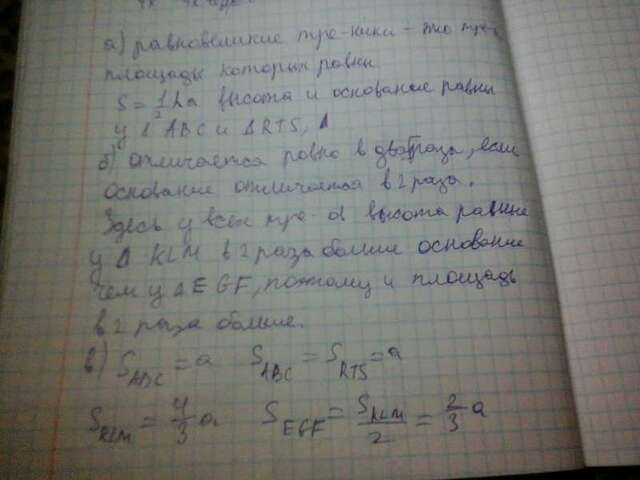 а) равновеликие тре-ники - это тре-
площадь которых равны
S = 1/2 ha высота и основание равны
у Δ ABC и Δ RTS,
б) отличается ровно в два раза, если
основание отличается в 2 раза.
Здесь у всех тре-
высота равны
у Δ KLM в 2 раза больше основание
чем у Δ EGF, поэтому и площадь
в 2 раза больше.
в) S ABC = a S ABC = S RTS = a
S KLM = 4/3 a S EGF = S KLM / 2 = 2/3 a